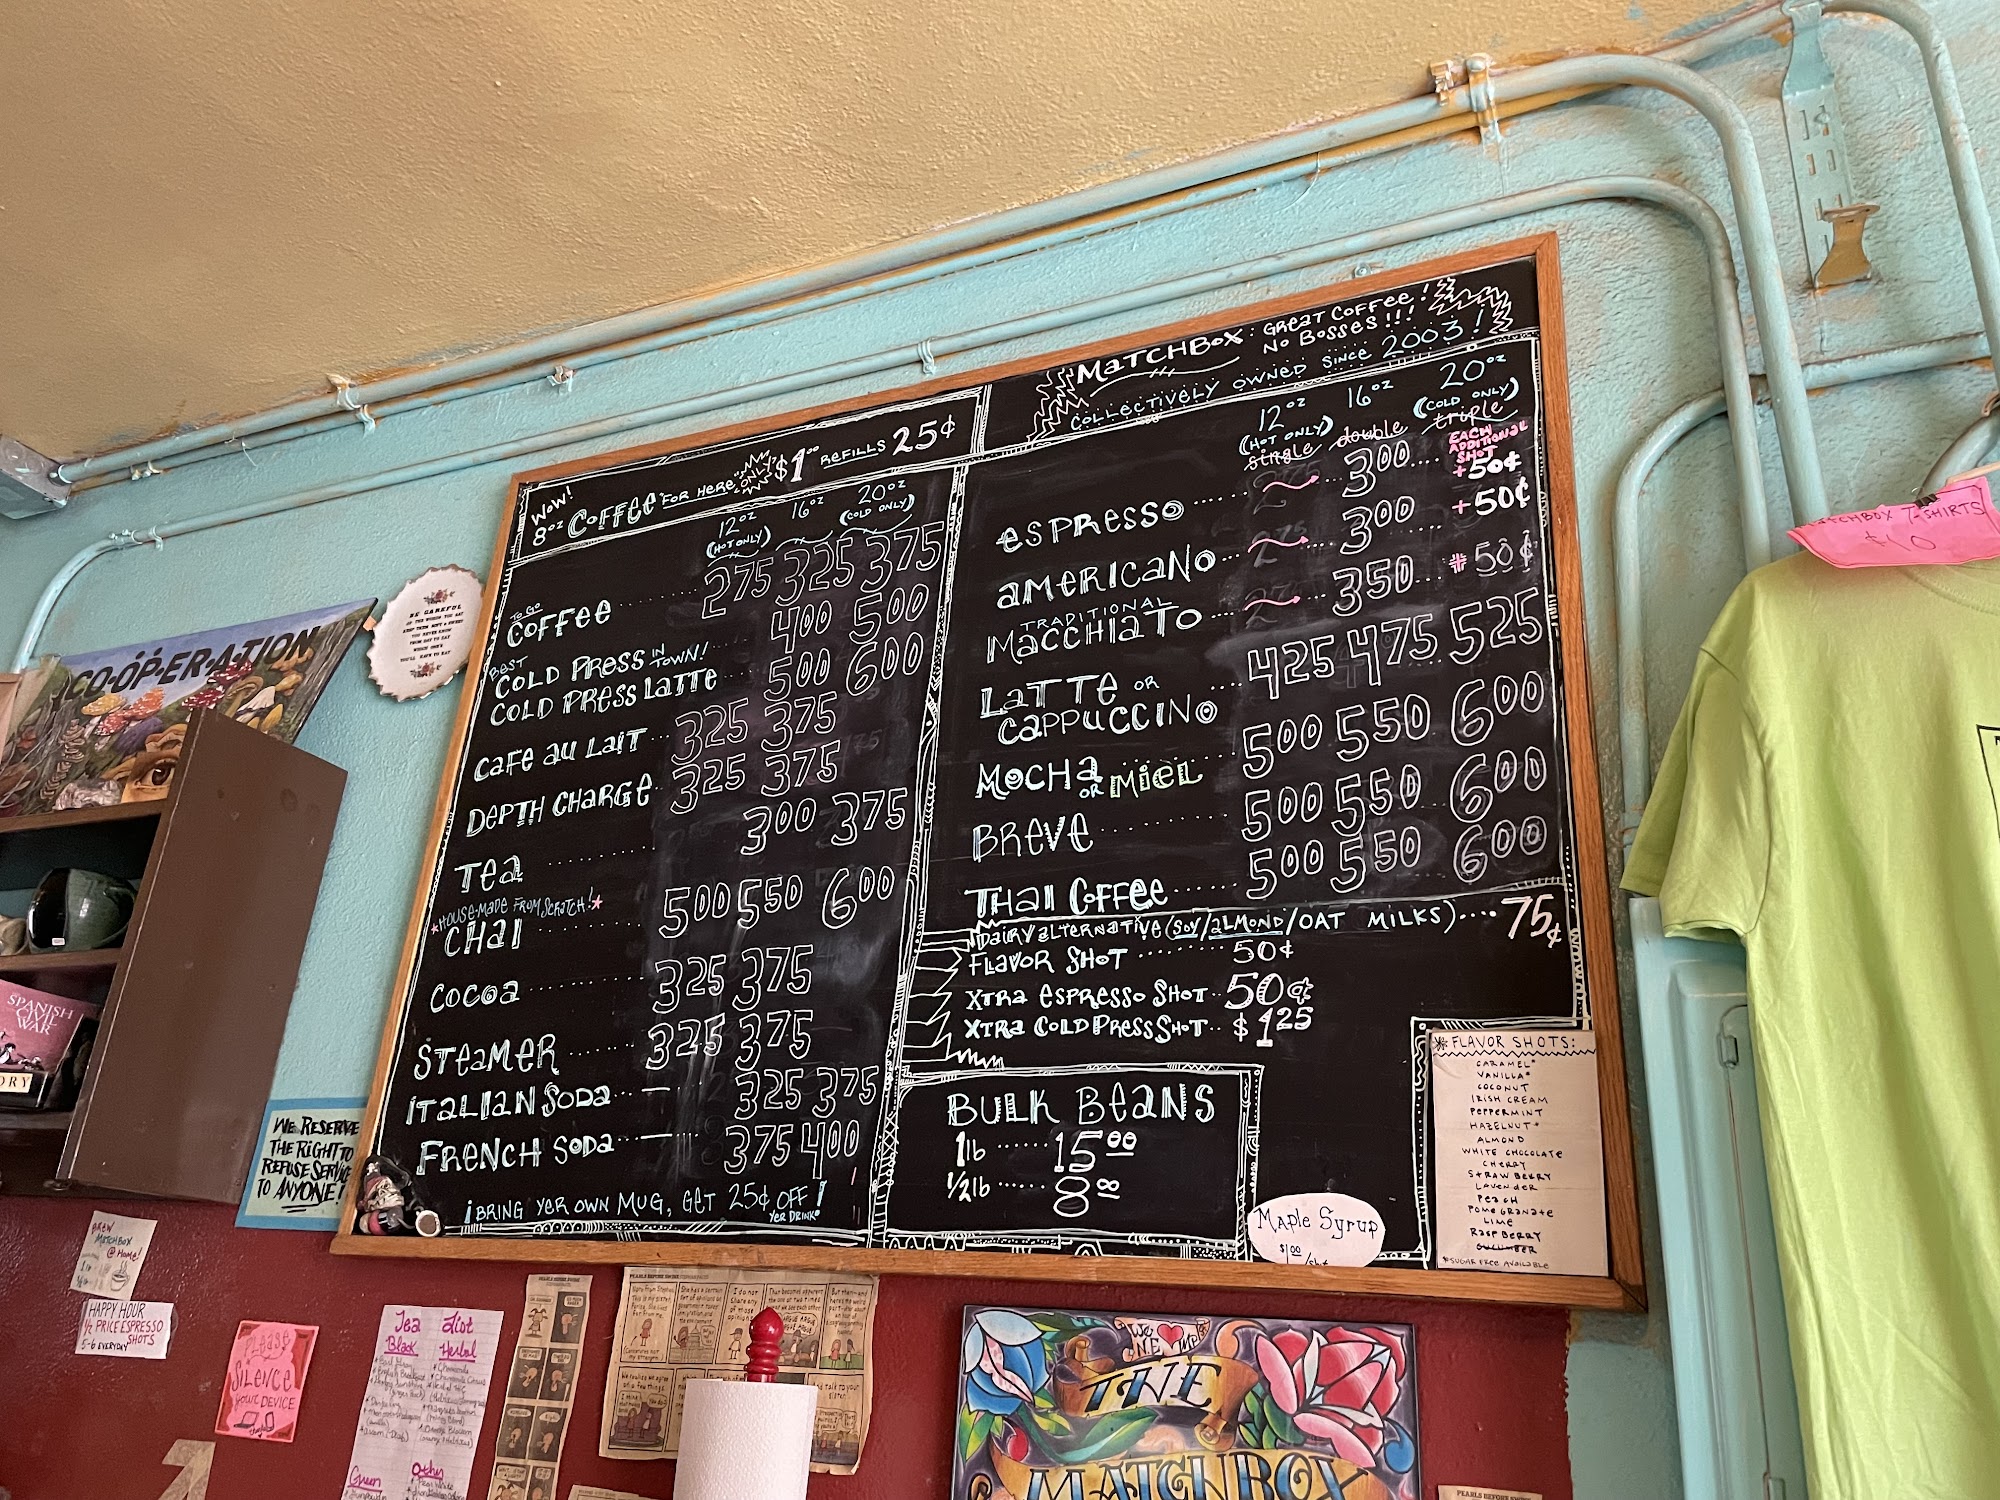 WOW!
8oz COFFEE FOR HERE ONLY $1.00 REFILLS 25¢
MATCHBOX: GREAT COFFEE!
NO BOSSES!!!
COLLECTIVELY OWNED SINCE 2003!
12oz 16oz 20oz
(HOT ONLY) (COLD ONLY)
TO GO
COFFEE 275 325 375
BEST COLD PRESS IN TOWN! 400 500
COLD PRESS LATTE 500 600
CAFE AU LAIT 325 375
DEPTH CHARGE 325 375
TEA 300 375
*HOUSE-MADE FROM SCRATCH!*
CHAI 500 550 600
COCOA 325 375
STEAMER 325 375
ITALIAN SODA 325 375
FRENCH SODA 375 400
¡BRING YER OWN MUG, GET 25¢ OFF!
YER DRINK!
12oz 16oz 20oz
(HOT ONLY) (COLD ONLY)
single double triple
EACH
ADDITIONAL
SHOT
ESPRESSO 300 +50¢
AMERICANO 300 +50¢
TRADITIONAL
MACCHIATO 350 +50¢
LATTE OR
CAPPUCCINO 425 475 525
MOCHA OR MIEL 500 550 600
BREVE 500 550 600
THAI COFFEE 500 550 600
DAIRY ALTERNATIVE (SOY/ALMOND/OAT MILKS) 75¢
FLAVOR SHOT 50¢
XTRA ESPRESSO SHOT 50¢
XTRA COLD PRESS SHOT $1.25
BULK BEANS
1lb 15.00
1/2lb 8.00
MAPLE SYRUP
$1.00
* FLAVOR SHOTS:
CARAMEL*
VANILLA*
COCONUT
IRISH CREAM
PEPPERMINT
HAZELNUT*
ALMOND
WHITE CHOCOLATE
CHERRY
STRAWBERRY
LAVENDER
PEACH
POMEGRANATE
LIME
RASPBERRY
CUCUMBER
*SUGAR FREE AVAILABLE
MATCHBOX T-SHIRTS
$10
CO-OP-ER-A-TION
BE CAREFUL
OF THE WORDS YOU SAY
KEEP THEM SOFT & SWEET
YOU NEVER KNOW
FROM DAY TO DAY
WHICH ONES
YOU'LL HAVE TO EAT
SPANISH
CIVIL
WAR
ORY
WE RESERVE
THE RIGHT TO
REFUSE SERVICE
TO ANYONE!
BREW
MATCHBOX
@ HOME!
HAPPY HOUR
1/2 PRICE ESPRESSO
SHOTS
5-6 EVERYDAY
PLEASE
SILENCE
YOUR DEVICE
Tea List
Black Herbal
Green Other
PEARLS BEFORE SWINE
WE ME
THE
MATCHBOX
PEARLS BEFORE SWINE